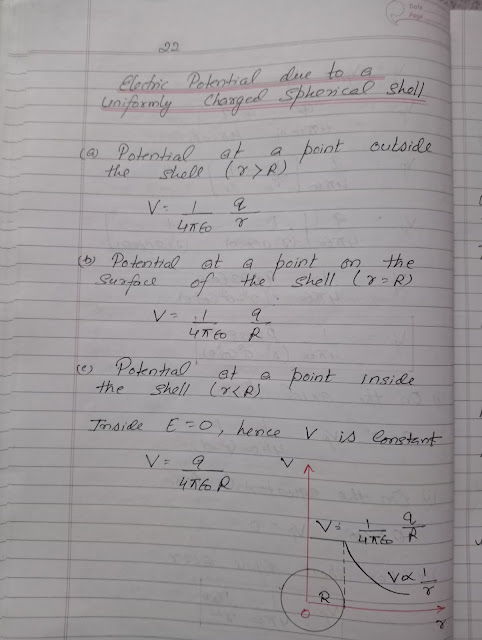 Date
Page
22
Electric Potential due to a
Uniformly Charged Spherical Shell
(a) Potential at a point outside
the shell (r>R)
V = 1/4πε0 q/r
(b) Potential at a point on the
Surface of the shell (r=R)
V = 1/4πε0 q/R
(c) Potential at a point inside
the shell (r<R)
Inside E=0, hence V is Constant
V = q/4πε0 R
V
V = 1/4πε0 q/R
V ∝ 1/r
R
O
r